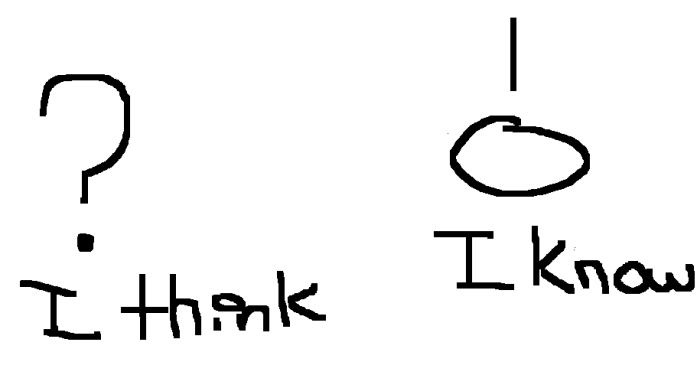 ?
I think
!
I know